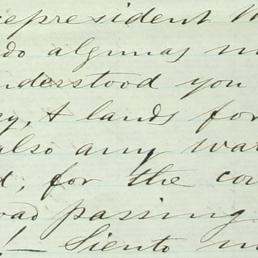 represident
do algunas
understood you
& lands for
also any wa
d, for the cou
oad passing
! — Siento m